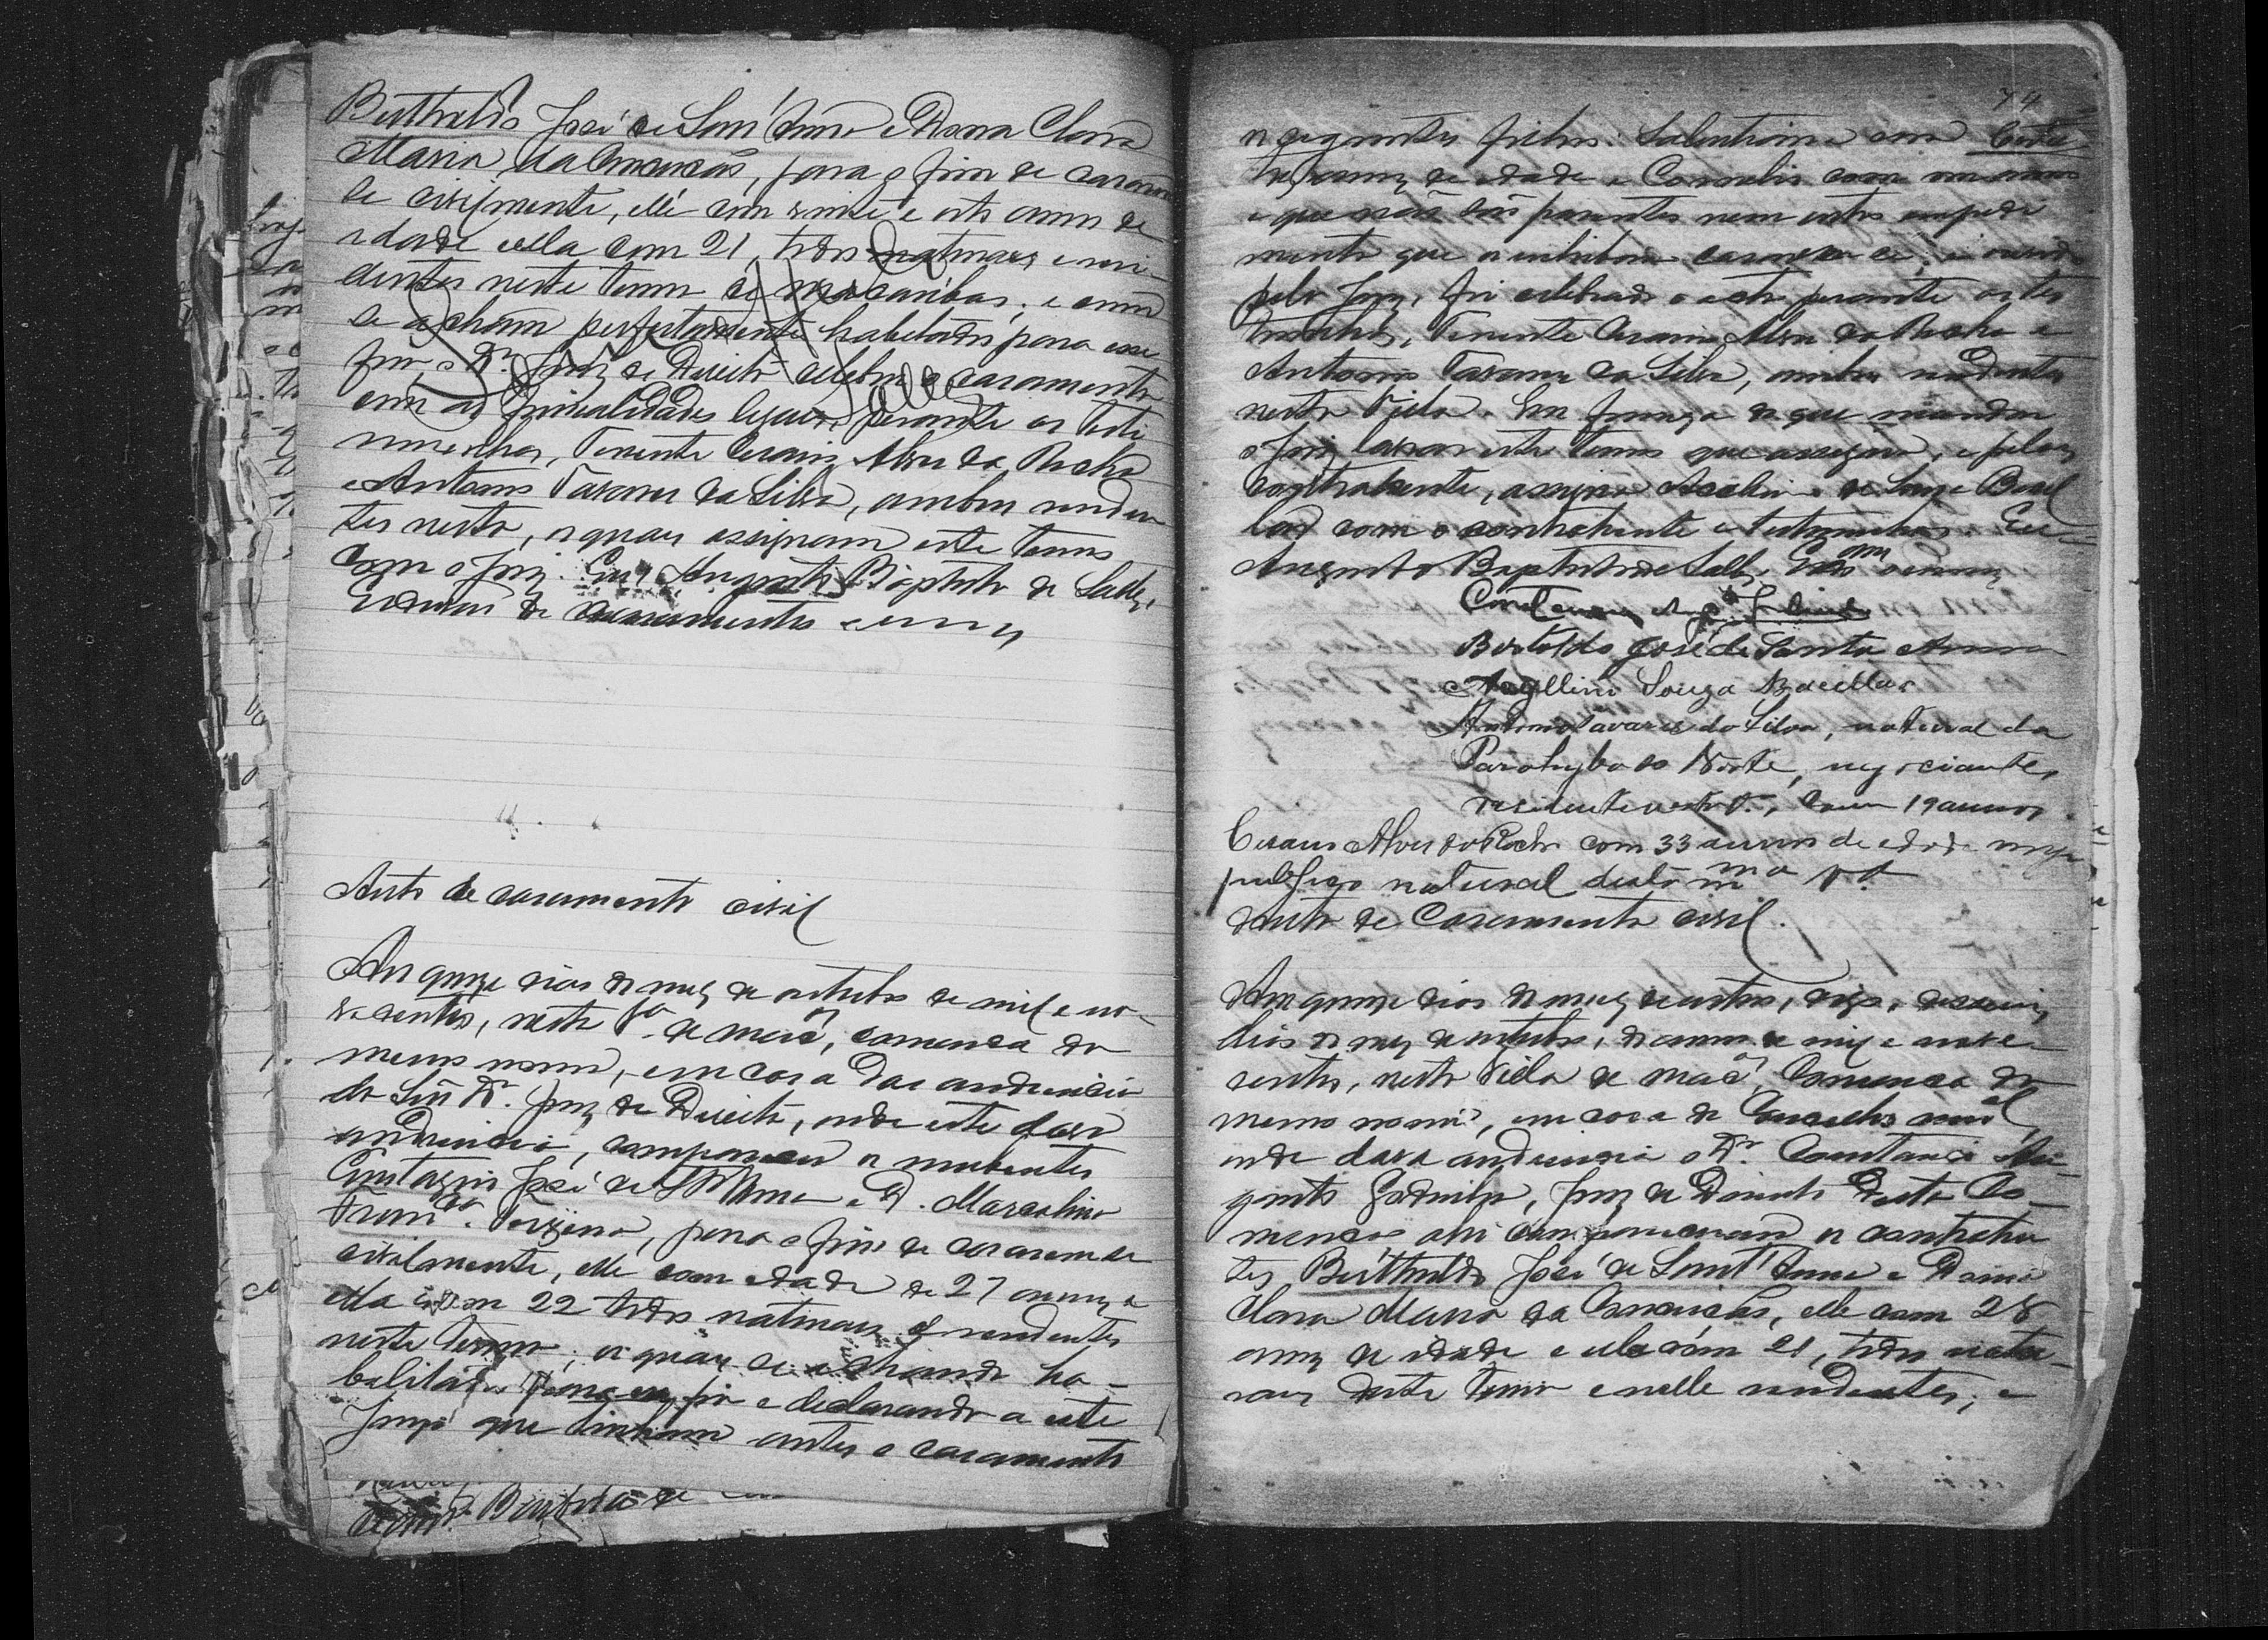 Berthold José de Sant'Anna e Dona Clara
Maria da Conceicão, para o fim de casarem
se civilmente, elle com vinte e oito annos de
edade e ella com 21, todos naturaes e resi-
dentes neste termo de Macaubas; e como
se acham perfeitamente habilitados para esse
fim, o Dr. Juiz de Direito celebrou o casamento
com as formalidades legaes, perante as teste
munhas, Tenente Alves da Rocha
e Antonio Tavares da Silva, ambos residen
tes nesta, os quaes assignam este termo
com o Juiz. Eu, Augusto Baptista de Salles,
Escrivão de casamentos
Auto de casamento civil
Aos quinze dias do mez de outubro de mil e no-
vecentos, nesta Va de comarca do
mesmo nome, em casa das audiencias
do Snr Dr. Juiz de Direito, onde este dava
audiencia, compareceu os nubentes
José de Sant'Anna e D. Marcolina
Franca. para o fim de casarem se
civilmente, elle com edade de 27 annos e
ella com 22 todos naturaes e residentes
neste termo; os quaes se achando ha-
bilitados para esse fim e declarando a este
Juizo que tinham antes o casamento
74
os seguintes filhos: Salustiana com
annos de edade e Cornelio com um anno
e que não são parentes nem outro impedi
mento que os inhibam casarem-se; e ouvido
pelo Juiz, foi celebrado o acto perante as tes
temunhas, Tenente Alves da Rocha e
Antonio Tavares da Silva, ambos residentes
nesta Villa. Em firmeza do que mandou
o Juiz lavrar este termo que assigna, e pelos
contrahente, assigna de Souza Bacel
lar com o contrahente e testemunhas. Eu
Augusto Baptista de Salles, Escrivão
Bertoldo José de Santa Anna
Souza Bacellar
Antonio Tavares da Silva, natural da
Parahyba do Norte, negociante,
residente nesta Va., com 19 annos
Alves da Rocha com 33 annos de edade
publico natural desta mma Va
Auto de Casamento civil.
Aos quinze dias do mez de outubro, digo, dezeseis
dias do mez de outubro, do anno de mil e nove-
centos, nesta Villa de Comarca do
mesmo nome, em casa do Conselho
onde dava audiencia o Dr. Constancio Au-
gusto Juiz de Direito desta Co-
marca ahi compareceram os contrahen
tes Berthold José de Sant'Anna e Dona
Clara Maria da Conceicão, elle com 28
annos de idade e ella com 21, todos natu-
raes deste termo e nelle residentes; e